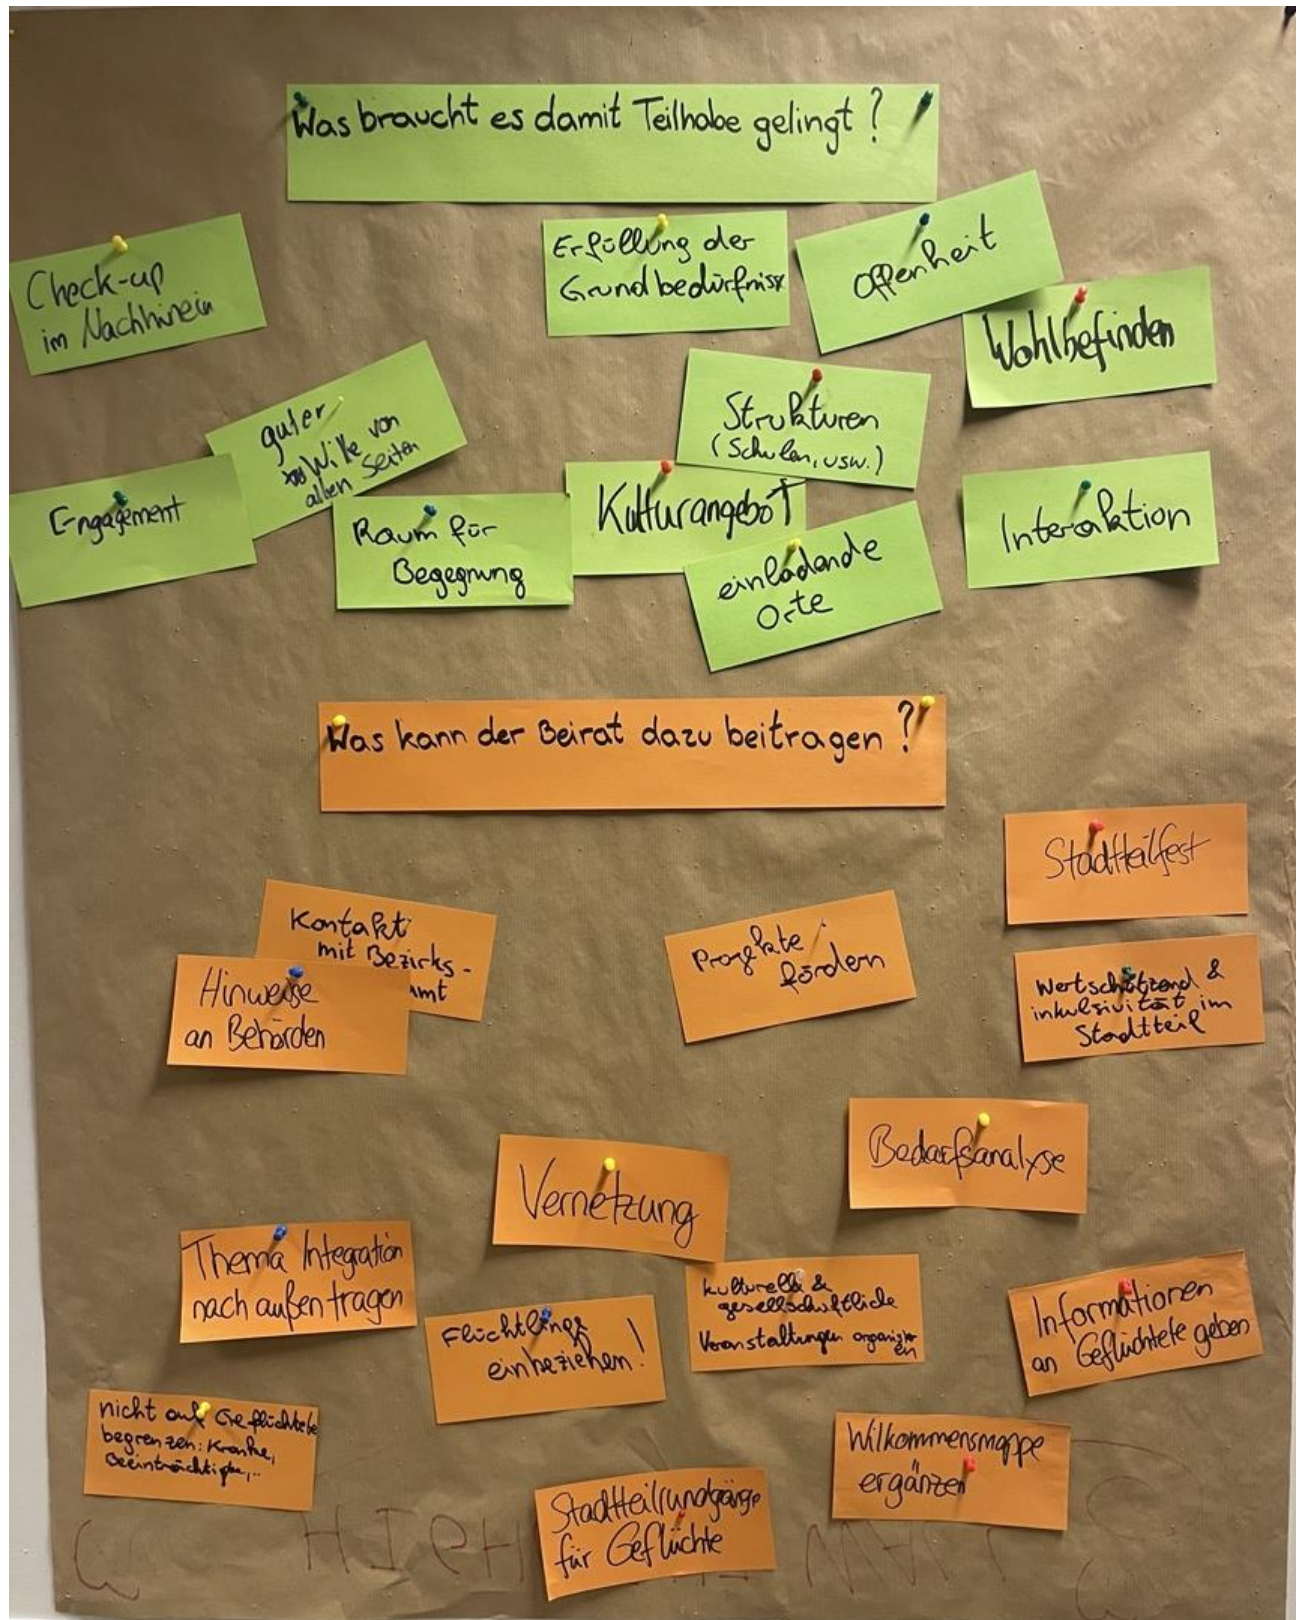 Was braucht es damit Teilhabe gelingt?
Check-up
im Nachhinein
Erfüllung der
Grundbedürfnisse
Offenheit
Wohlbefinden
guter
Wille von
allen Seiten
Strukturen
(Schulen, usw.)
Engagement
Raum für
Begegnung
Kulturangebot
einladende
Orte
Interaktion
Was kann der Beirat dazu beitragen?
Stadtteilfest
Kontakt
mit Bezirks-
amt
Hinweise
an Behörden
Projekte
fördern
Wertschätzend &
inkulsivität im
Stadtteil
Bedarfsanalyse
Vernetzung
Thema Integration
nach außen tragen
Flüchtlinge
einbeziehen!
kulturelle &
gesellschaftliche
Veranstaltungen organisier
en
Informationen
an Geflüchtete geben
nicht auf Geflüchtete
begrenzen: Kranke,
Beeinträchtigte,..
Wilkommensmappe
ergänzen
Stadtteilrundgänge
für Geflüchte